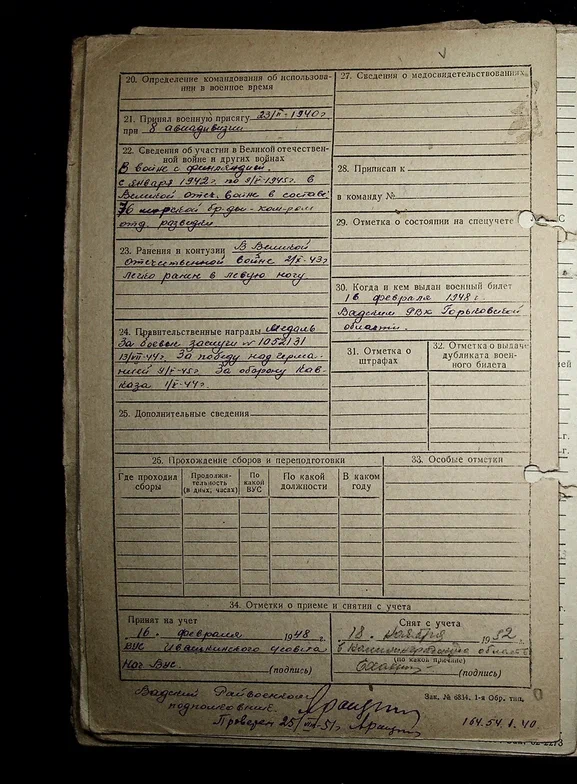 20. Определение командования об использова-
нии в военное время
21. Принял военную присягу 23/II-1940г
при 8 авиадивизии
22. Сведения об участии в Великой отечествен-
ной войне и других войнах
В войне с финляндией.
с января 1942г. по 9/V-1945г. в
Великой отеч. войне в составе
76 морской бр-ды-ком-ром
отд. разведки
23. Ранения и контузии В Великой
отечественной войне 2/X-43г
легко ранен в левую ногу
24. Правительственные награды Медаль
За боевые заслуги № 1052131
13/VII-44г. За победу над Герма-
нией 9/V-45г. За оборону Кав-
каза 1/V-44г.
25. Дополнительные сведения
27. Сведения о медосвидетельствованиях
28. Приписан к
в команду №
29. Отметка о состоянии на спецучете
30. Когда и кем выдан военный билет
16 февраля 1948 г.
Вадским РВК Горьковской
области.
31. Отметка о
штрафах
32. Отметка о выдаче
дубликата воен-
ного билета
26. Прохождение сборов и переподготовки
Где проходил
сборы
Продолжи-
тельность
(в днях, часах)
По
какой
ВУС
По какой
должности
В каком
году
33. Особые отметки
34. Отметки о приеме и снятии с учета
Принят на учет
16. февраля 1948 г.
ВУС
Нач ВУС.
(подпись)
Снят с учета
18. ноября 1952 г.
в Калининградскую область
(по какой причине)
(подпись)
Вадский Райвоенком
подполковник
Проверен 25/VII-51г
Зак. № 6834. 1-я Обр. тип.